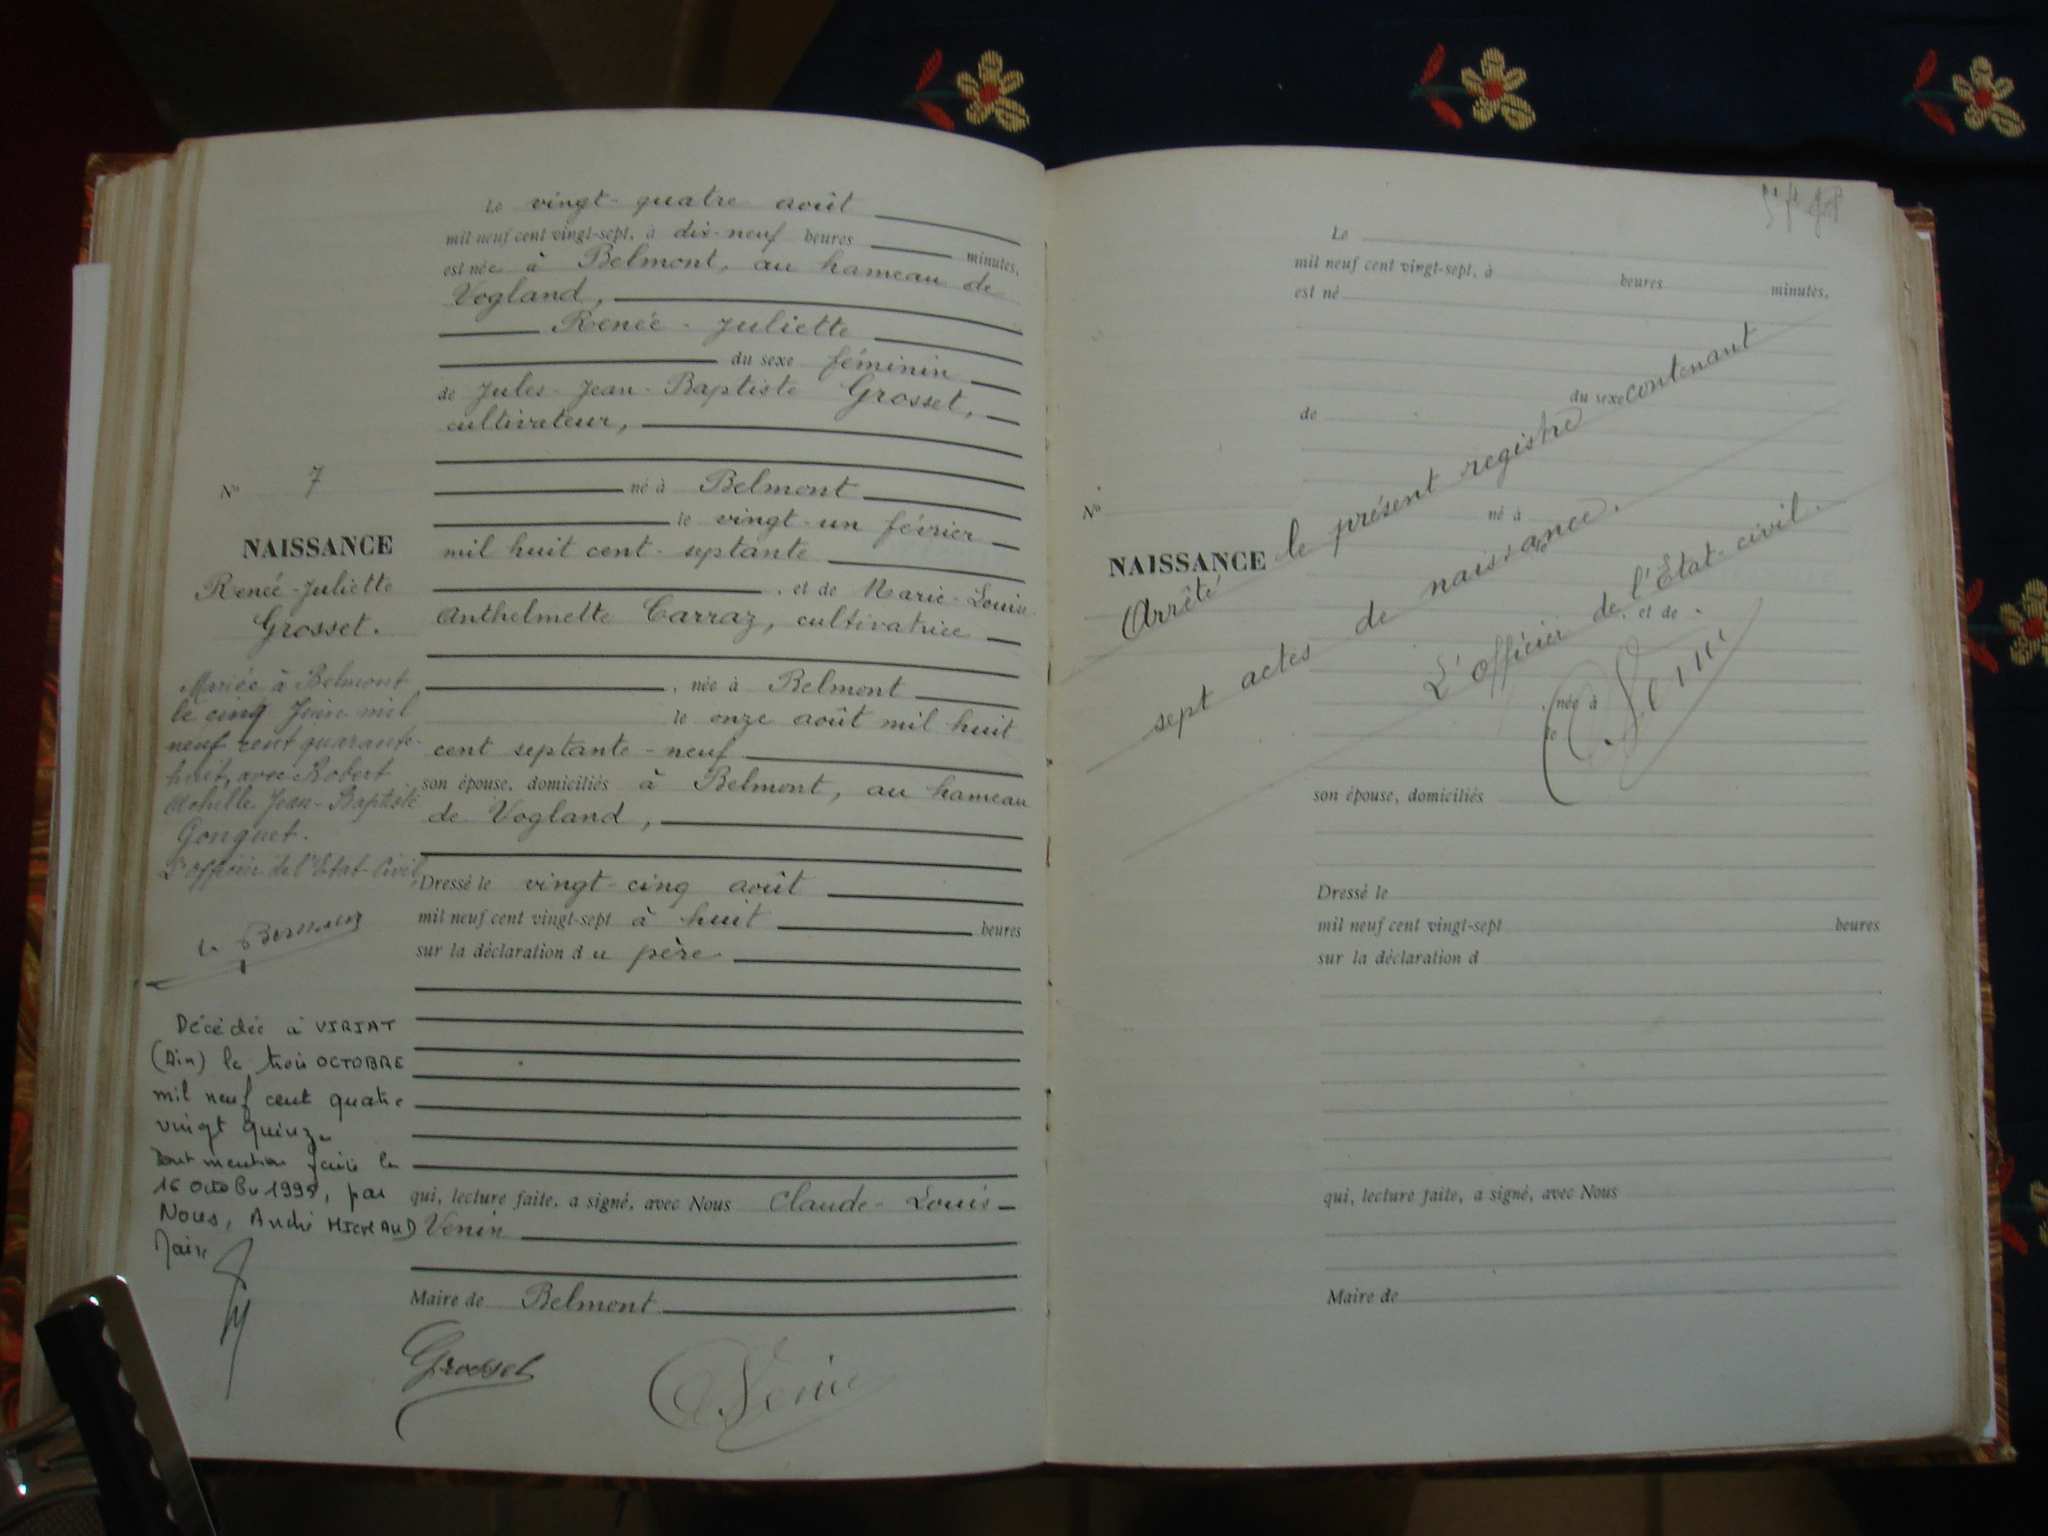 Le vingt-quatre août
mil neuf cent vingt-sept, à dix-neuf heures minutes,
est née à Belmont, au hameau de
Vogland,
Renée-Juliette
du sexe féminin
de Jules-Jean-Baptiste Grosset,
cultivateur,
né à Belmont
le vingt-un février
mil huit cent-septante
, et de Marie-Louise
Anthelmette Carraz, cultivatrice
, née à Belmont
le onze août mil huit
cent septante-neuf
son épouse, domiciliés à Belmont, au hameau
de Vogland,
Dressé le vingt-cinq août
mil neuf cent vingt-sept à huit heures
sur la déclaration du père
qui, lecture faite, a signé, avec Nous Claude-Louis
Venin
Maire de Belmont
Grosset
Venin
N° 7
NAISSANCE
Renée-Juliette
Grosset.
Mariée à Belmont
le cinq Juin mil
neuf cent quarante-
huit, avec Robert
Jean-Baptiste
Gonguet.
L'officier de l'Etat-Civil,
Décédée à VIRIAT
(Ain) le trois OCTOBRE
mil neuf cent quatre
vingt quinze
Dont mention faite le
16 octobre 1995, par
Nous, André MICHAUD
Maire
Le
mil neuf cent vingt-sept, à heures minutes,
est né
du sexe
de
N°
né à
le
NAISSANCE
, et de
, née à
le
son épouse, domiciliés
Dressé le
mil neuf cent vingt-sept heures
sur la déclaration d
qui, lecture faite, a signé, avec Nous
Maire de
Arrêté le présent registre contenant
sept actes de naissance.
L'officier de l'Etat-civil.
Venin